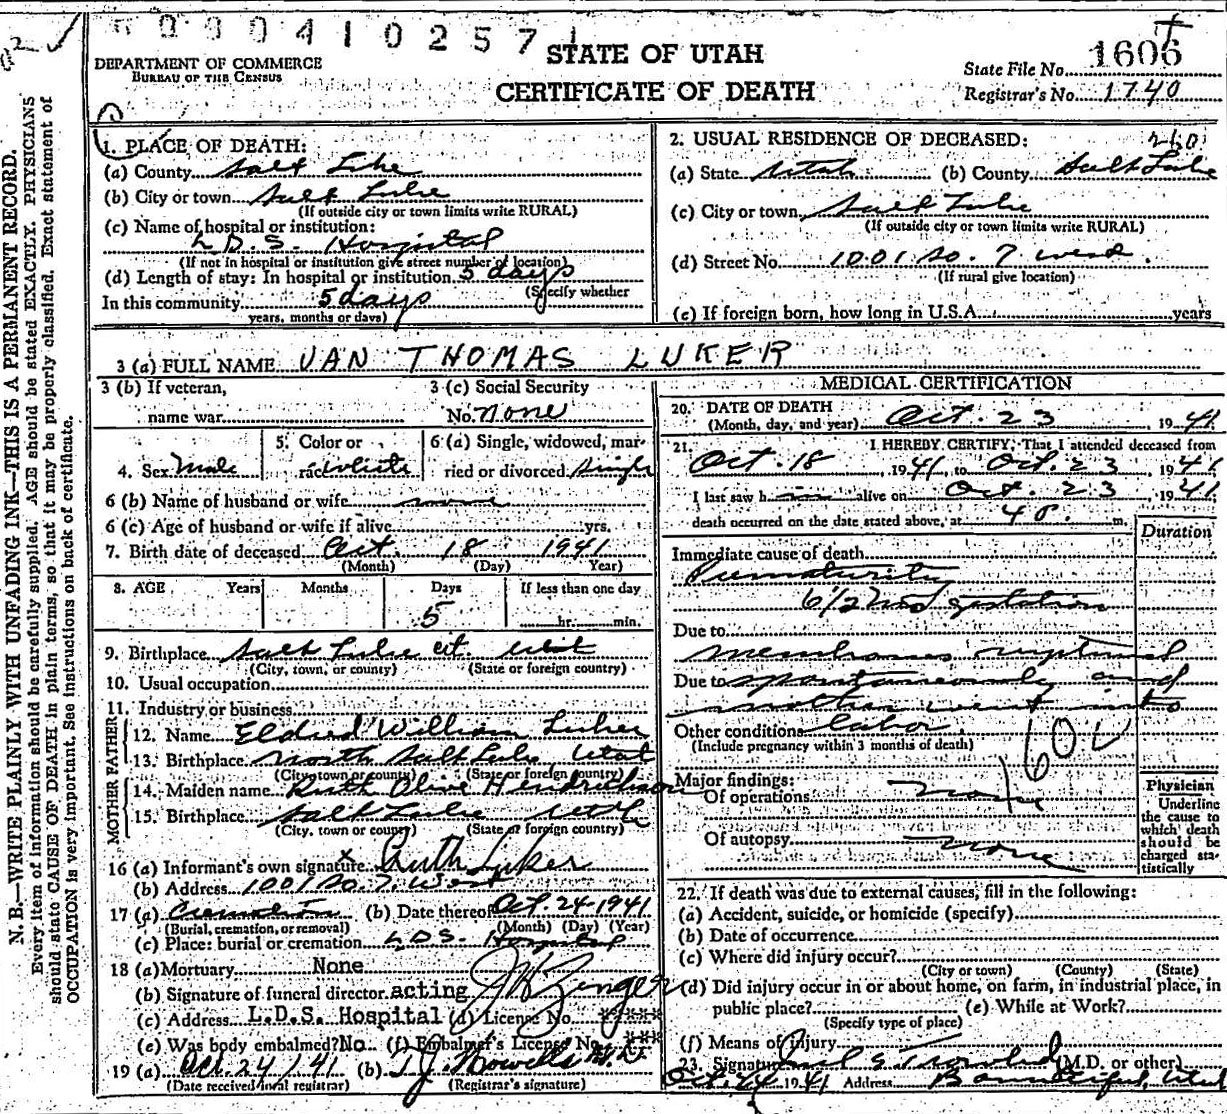 0 9 0 0 4 1 0 2 5 7 1
STATE OF UTAH
CERTIFICATE OF DEATH
DEPARTMENT OF COMMERCE
BUREAU OF THE CENSUS
State File No. 1606
Registrar's No. 1740
N. B.—WRITE PLAINLY WITH UNFADING INK—THIS IS A PERMANENT RECORD.
Every item of information should be carefully supplied. AGE should be stated EXACTLY. PHYSICIANS
should state CAUSE OF DEATH in plain terms, so that it may be properly classified. Exact statement of
OCCUPATION is very important. See instructions on back of certificate.
1. PLACE OF DEATH:
(a) County Salt Lake
(b) City or town Salt Lake
(If outside city or town limits write RURAL)
(c) Name of hospital or institution:
L.D.S. Hospital
(If not in hospital or institution give street number of location)
(d) Length of stay: In hospital or institution 5 days
(Specify whether
In this community 5 days
years, months or days)
2. USUAL RESIDENCE OF DECEASED: 260
(a) State Utah (b) County Salt Lake
(c) City or town Salt Lake
(If outside city or town limits write RURAL)
(d) Street No. 1001 So. 7 West.
(If rural give location)
(e) If foreign born, how long in U.S.A. years
3 (a) FULL NAME VAN THOMAS LUKER
3 (b) If veteran,
name war
3 (c) Social Security
No. None
4. Sex Male
5. Color or
race White
6 (a) Single, widowed, mar-
ried or divorced Single
6 (b) Name of husband or wife none
6 (c) Age of husband or wife if alive yrs.
7. Birth date of deceased Oct. 18 1941
(Month) (Day) Year)
8. AGE Years Months Days If less than one day
5 hr. min.
9. Birthplace Salt Lake
(City, town, or county) (State or foreign country)
10. Usual occupation
11. Industry or business
FATHER
12. Name Eldred William Luker
13. Birthplace North Salt Lake Utah
(City, town or county) (State or foreign country)
MOTHER
14. Maiden name Ruth Olive Hendrickson
15. Birthplace Salt Lake Utah
(City, town or county) (State or foreign country)
16 (a) Informant's own signature x Ruth Luker
(b) Address 1001 So. 7. West
17 (a) Cremation (b) Date thereof Oct. 24-1941
(Burial, cremation, or removal) (Month) (Day) (Year)
(c) Place: burial or cremation L.D.S. Hospital
18 (a) Mortuary None
(b) Signature of funeral director acting
(c) Address L.D.S. Hospital (d) License No. *****
(e) Was body embalmed? No (f) Embalmer's License No. ***
19 (a) Oct. 24/41 (b) T. J. Howells
(Date received local registrar) (Registrar's signature)
MEDICAL CERTIFICATION
20. DATE OF DEATH
(Month, day, and year) Oct. 23 1941
21. I HEREBY CERTIFY, That I attended deceased from
Oct. 18, 1941, to Oct. 23 1941
I last saw him alive on Oct. 23, 1941
death occurred on the date stated above, at m.
Duration
Immediate cause of death
Prematurity
6 1/2 gestation
Due to
membranes ruptured
Due to spontaneously and
mother went into
Other conditions labor
(Include pregnancy within 3 months of death)
Major findings:
Of operations none
Of autopsy none
Physician
Underline
the cause to
which death
should be
charged sta-
tistically
22. If death was due to external causes, fill in the following:
(a) Accident, suicide, or homicide (specify)
(b) Date of occurrence
(c) Where did injury occur?
(City or town) (County) (State)
(d) Did injury occur in or about home, on farm, in industrial place, in
public place? (e) While at Work?
(Specify type of place)
(f) Means of injury
23. Signature (M.D. or other)
Oct. 24 1941 Address Bountiful, Utah